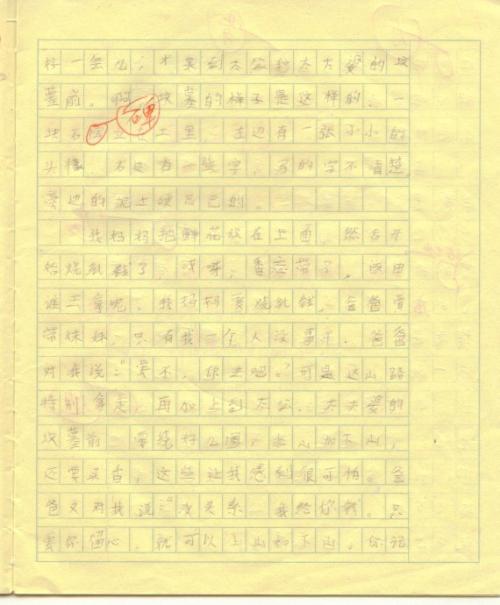 好一会儿，才来到太公和太太婆的坟
墓前。啊，坟墓的样子是这样的，一
块石碑立在土里，左边有一张小小的
头像，右边有一些字，写的字不清楚
旁边的泥土硬巴巴的。
我妈妈把鲜花放在上面，然后开
给烧乳钱了，哎呀，香忘带了，该由
谁去拿呢，我妈妈要烧乳钱，爸爸管
带妹妹，只有我一个人没事干，爸爸
对我说：“要不，你去吧。”可是这山路
特别难走，再加上到太公、太太婆的
坟墓前要绕好几圈，上山加下山，
还要买香，这些让我感到很可怕。爸
爸又对我说：“没关系，我给你钱。只
要你值心，就可以上山和下山，你记